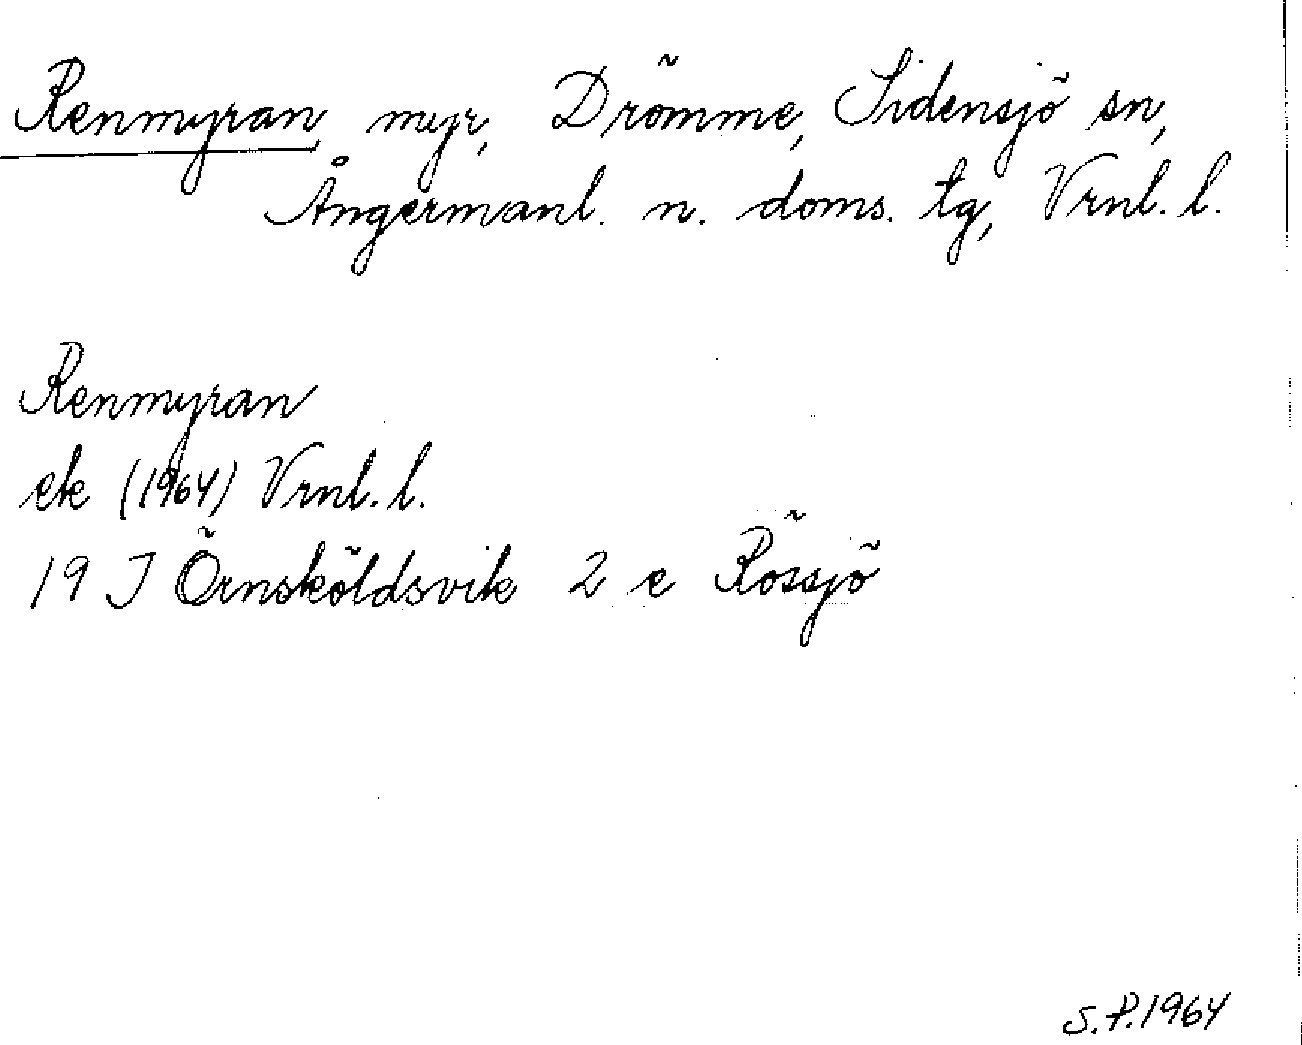 Renmyran, myr, Drömme, Sidensjö sn,
Ångermanl. n. doms. tg, Vrnl. l.
Renmyran
ek (1964) Vrnl. l.
19 J Örnsköldsvik 2 e Rössjö
S.P. 1964